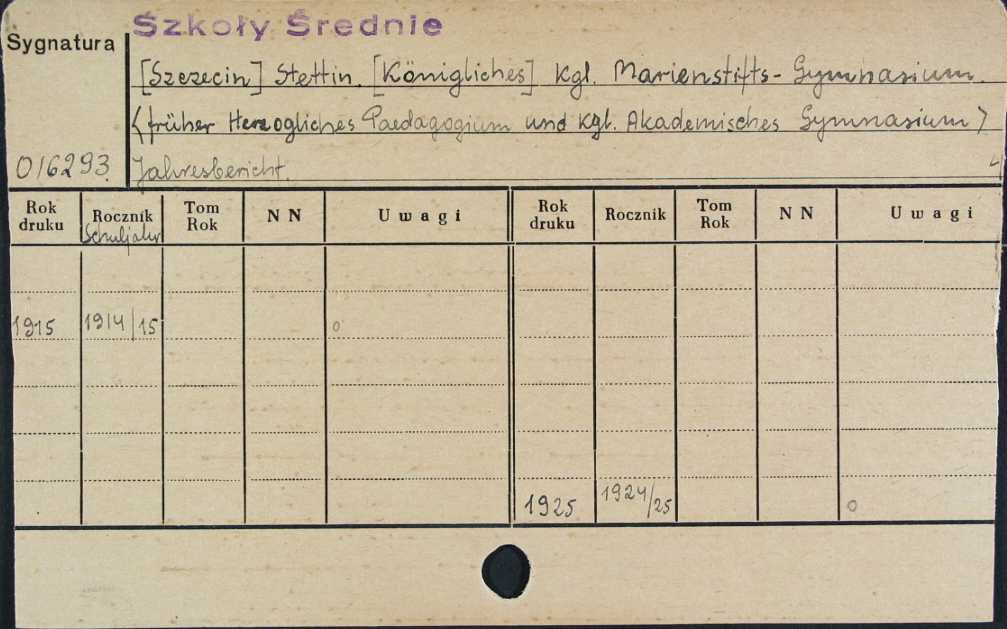 Szkoły Średnie
Sygnatura
[Szczecin] Stettin. [Königliches] Kgl. Marienstifts-Gymnasium.
(früher Herzogliches Paedagogium und Kgl. Akademisches Gymnasium)
016293. Jahresbericht.
Rok druku Rocznik Schuljahr Tom Rok N N Uwagi Rok druku Rocznik Tom Rok N N Uwagi
1915 1914/15 o
1925 1924/25 o